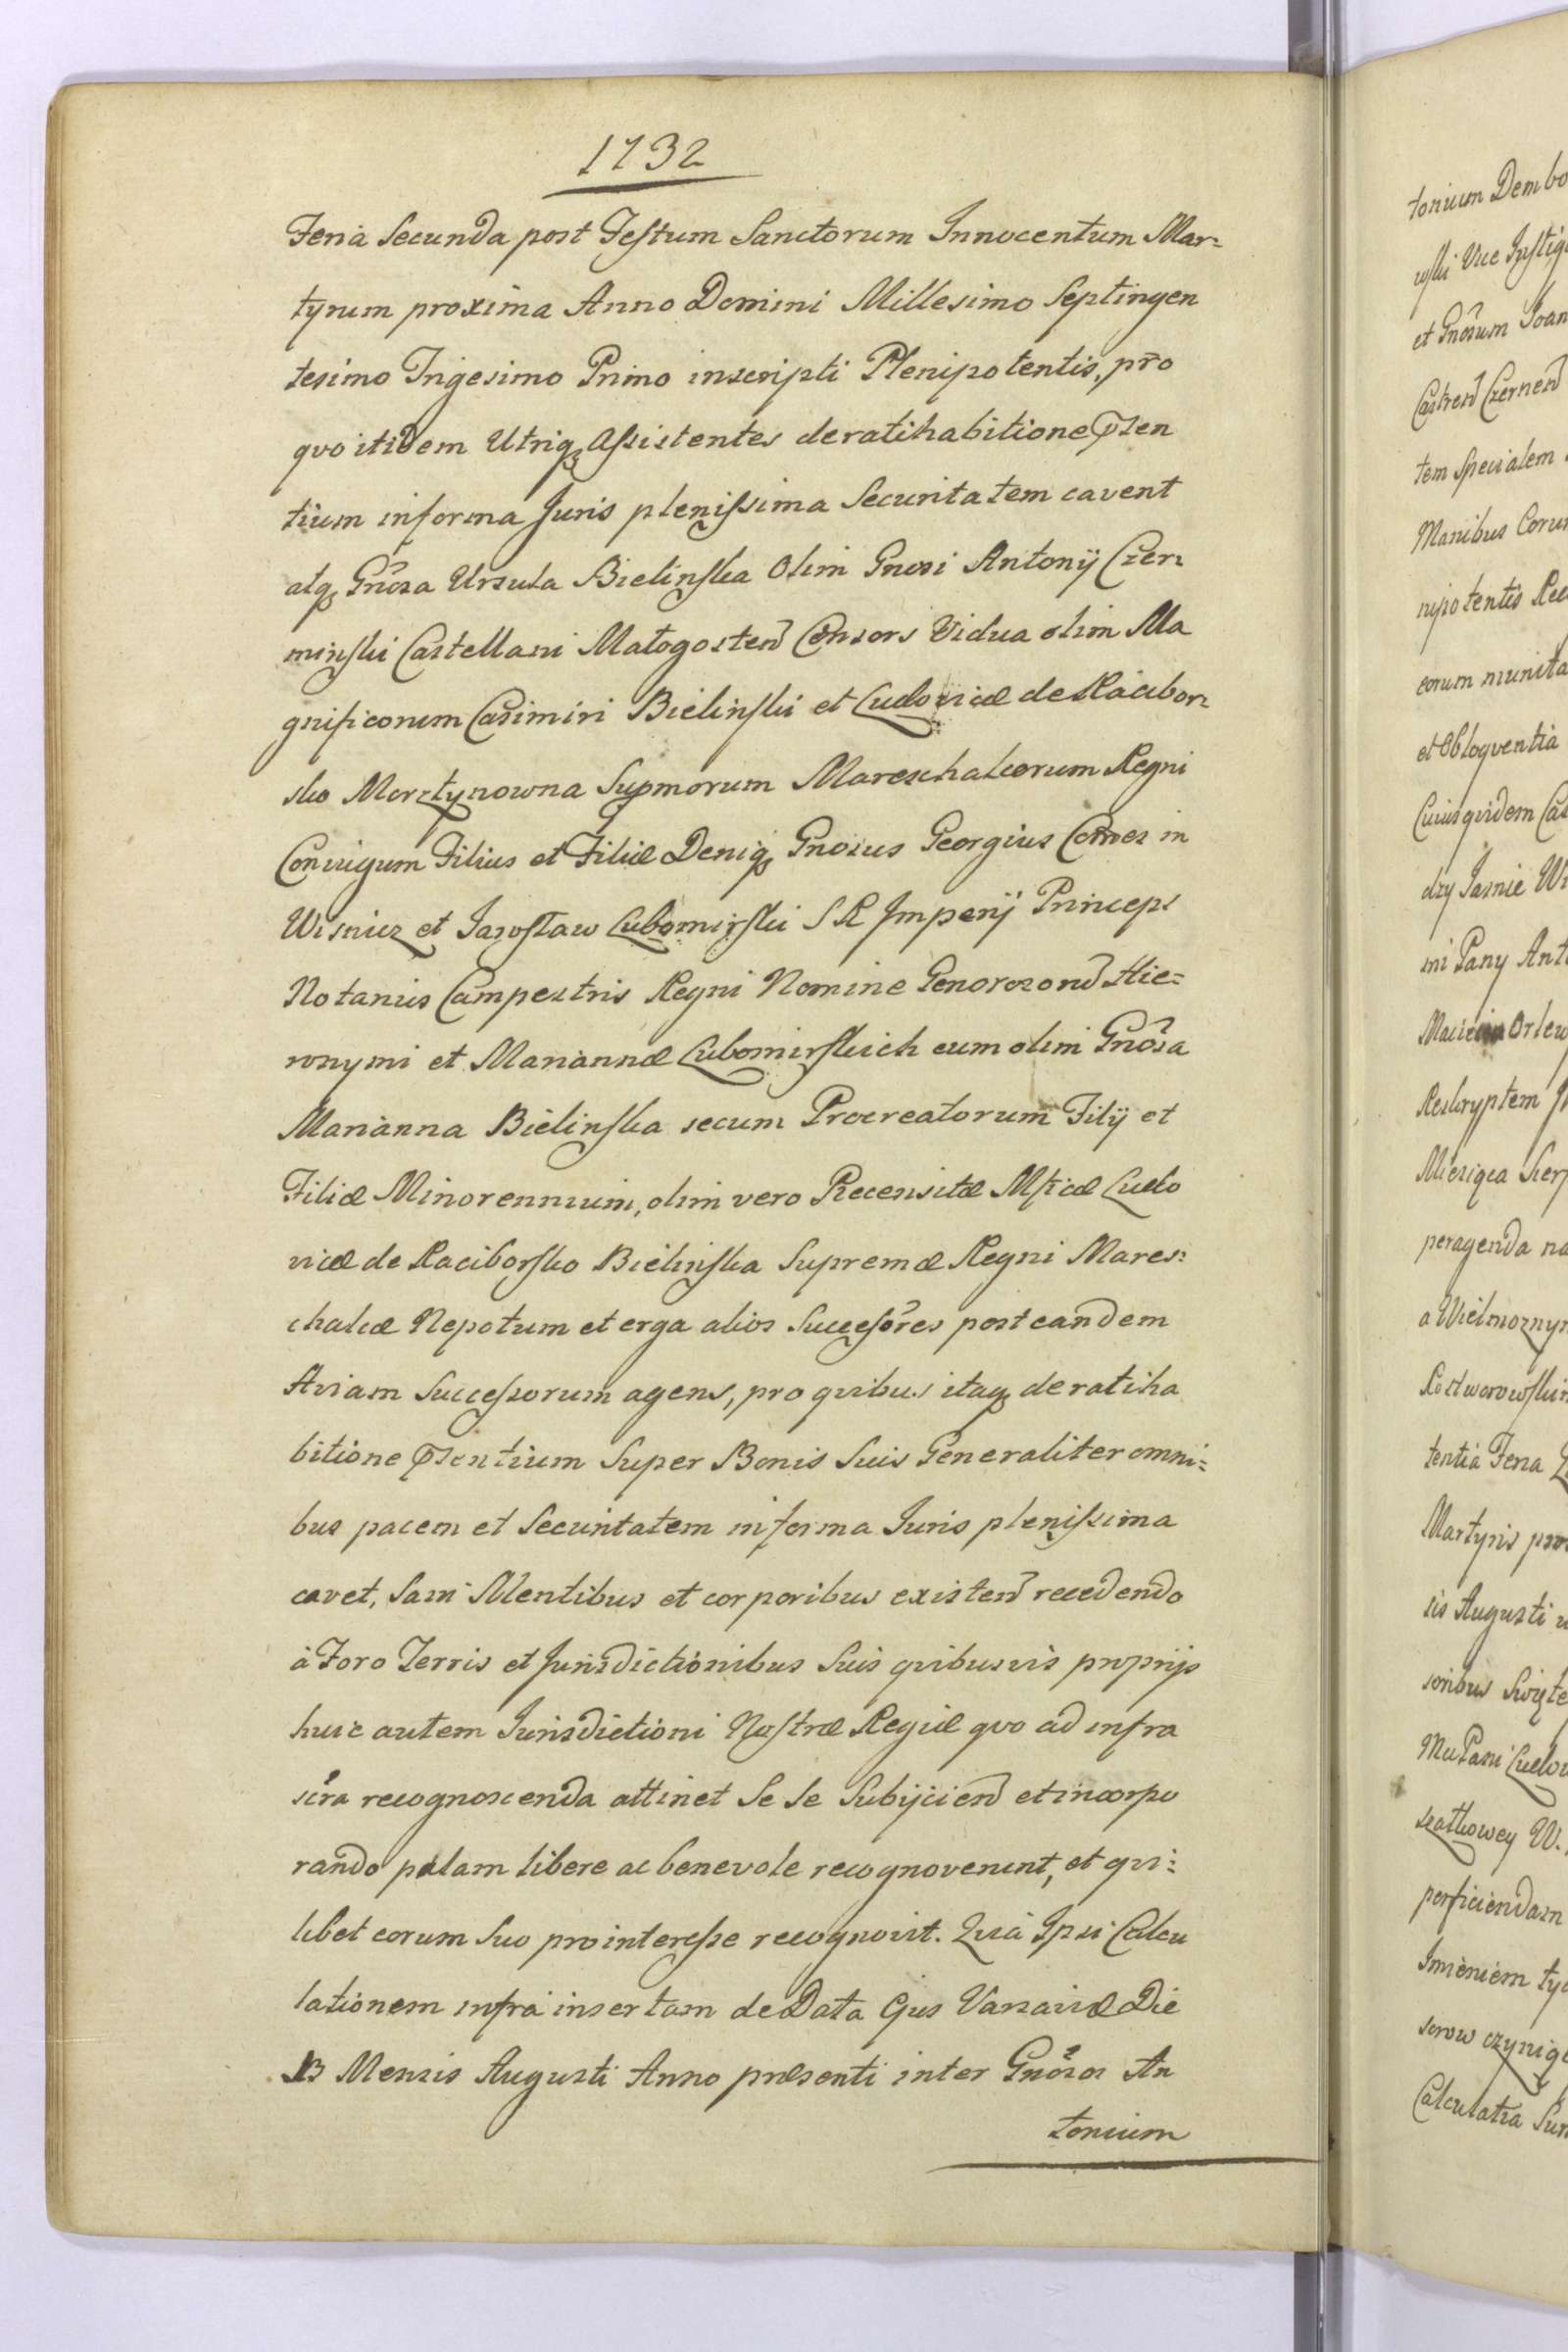 1732
Feria Secunda post Festum Sanctorum Innocentum Mar=
tyrum proxima Anno Domini Millesimo Septingen
tesimo Trigesimo Primo inscripti Plenipotentis, pro
quo itidem Utriq₃ Assistentes de ratihabitione pnsen
tium in forma Juris plenissima Securitatem cavent
atq₃ Gnosa Ursula Bielinska Olim Gnosi Antonij Czer=
minski Castellani Małogosten Consors Vidua olim Ma
gnificorum Casimiri Bielinski et Ludovicæ de Racibor=
sko Morztynowna Supmorum Mareschalcorum Regni
Coniugum Filius et Filiæ Deniq₃ Gnosus Georgius Comes in
Wisnicz et Jarosław Lubomirski S R Imperij Princeps
Notarius Campestris Regni Nomine Generoson Hie=
ronymi et Mariannæ Lubomirskich cum olim Gnosa
Marianna Bielinska secum Procreatorum Filij et
Filiæ Minorennium, olim vero Recensitæ Mficæ Ludo
vicæ de Raciborsko Bielinska Supremæ Regni Mares=
chalcæ Nepotum et erga alios Successores post eandem
Aviam Successorum agens, pro quibus itaq₃ de ratiha
bitione pnsentium Super Bonis Suis Generaliter omni=
bus pacem et Securitatem in forma Juris plenissima
cavet, Sani Mentibus et corporibus existen recedendo
à Foro Terris et Jurisdictionibus Suis quibusvis proprijs
huic autem Jurisdictioni Nostræ Regiæ quo ad infra
scra recognoscenda attinet Se Se Subijcien et incorpo
rando palam libere ac benevole recognoverunt, et qui=
libet eorum Suo pro interesse recognovit. Quia Ipsi Calcu
lationem infra insertam de Data Ejus Varsaviæ Die
13 Mensis Augusti Anno præsenti inter Gnosos An
tonium
tonium Dembo
wski Vice Instig
et Gnosum Joan
Castren Czernen
tem Specialem
Manibus Coru
nipotentis Rec
eorum munita
et Obloquentia
Cuius quidem Ca
dzy Jasnie W
mi Pany Ant
Orlew
Reskryptem
Miesiąca Sierp
peragenda na
a Wielmoznym
Rostworowskim
tentia Feria
Martyris pro
sis Augusti
soribus Święte
Mci Pani Ludov
szałkowey W.
perficiendam
Imieniem ty
sorow czyniąc
Calculatia Sum